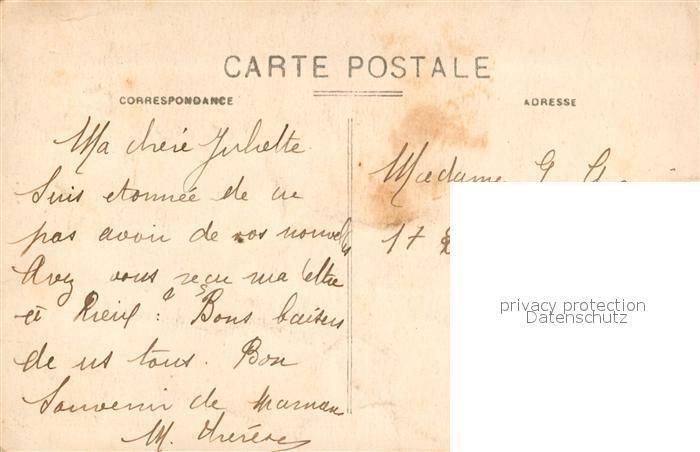 CARTE POSTALE
CORRESPONDANCE
ADRESSE
Ma chère Juliette
Suis etonnée de ne
pas avoir de vos nouvelles
Avez vous reçu ma lettre
et ? Bons baisers
de ns tous. Bon
Souvenir de Maman
M. Thérèse
Madame G.
17
privacy protection
Datenschutz